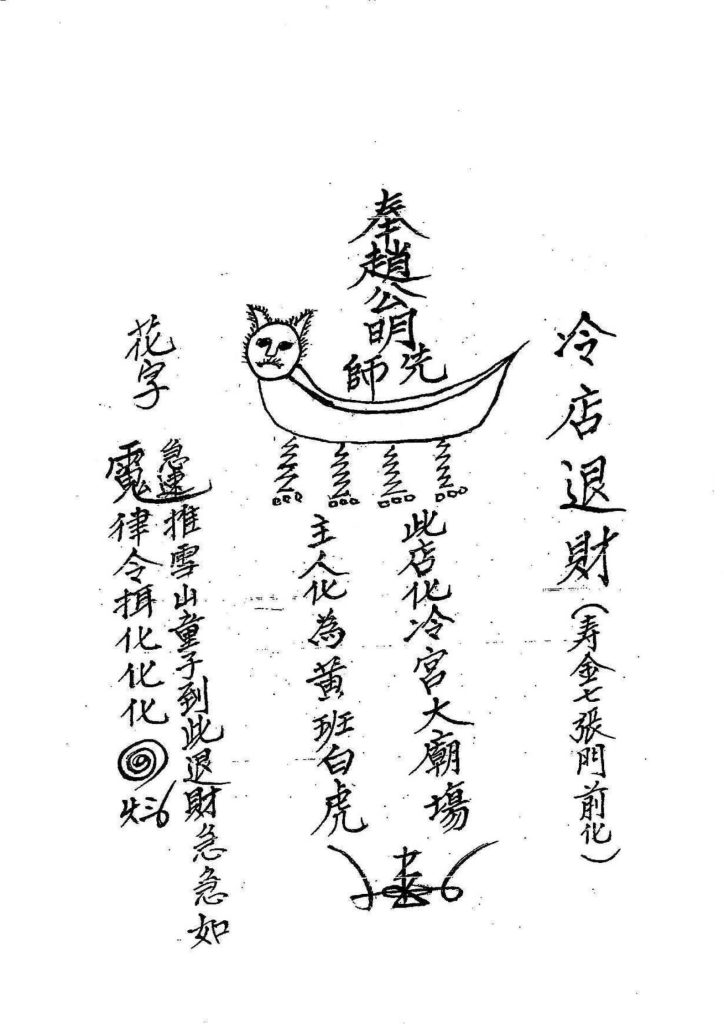 冷店退財（寿金七張門前化）
奉趙公明
先師
此店化冷宮大廟場
主人化為黃班白虎
急速推雪山童子到此退財急急如
律令揖化化化
花字